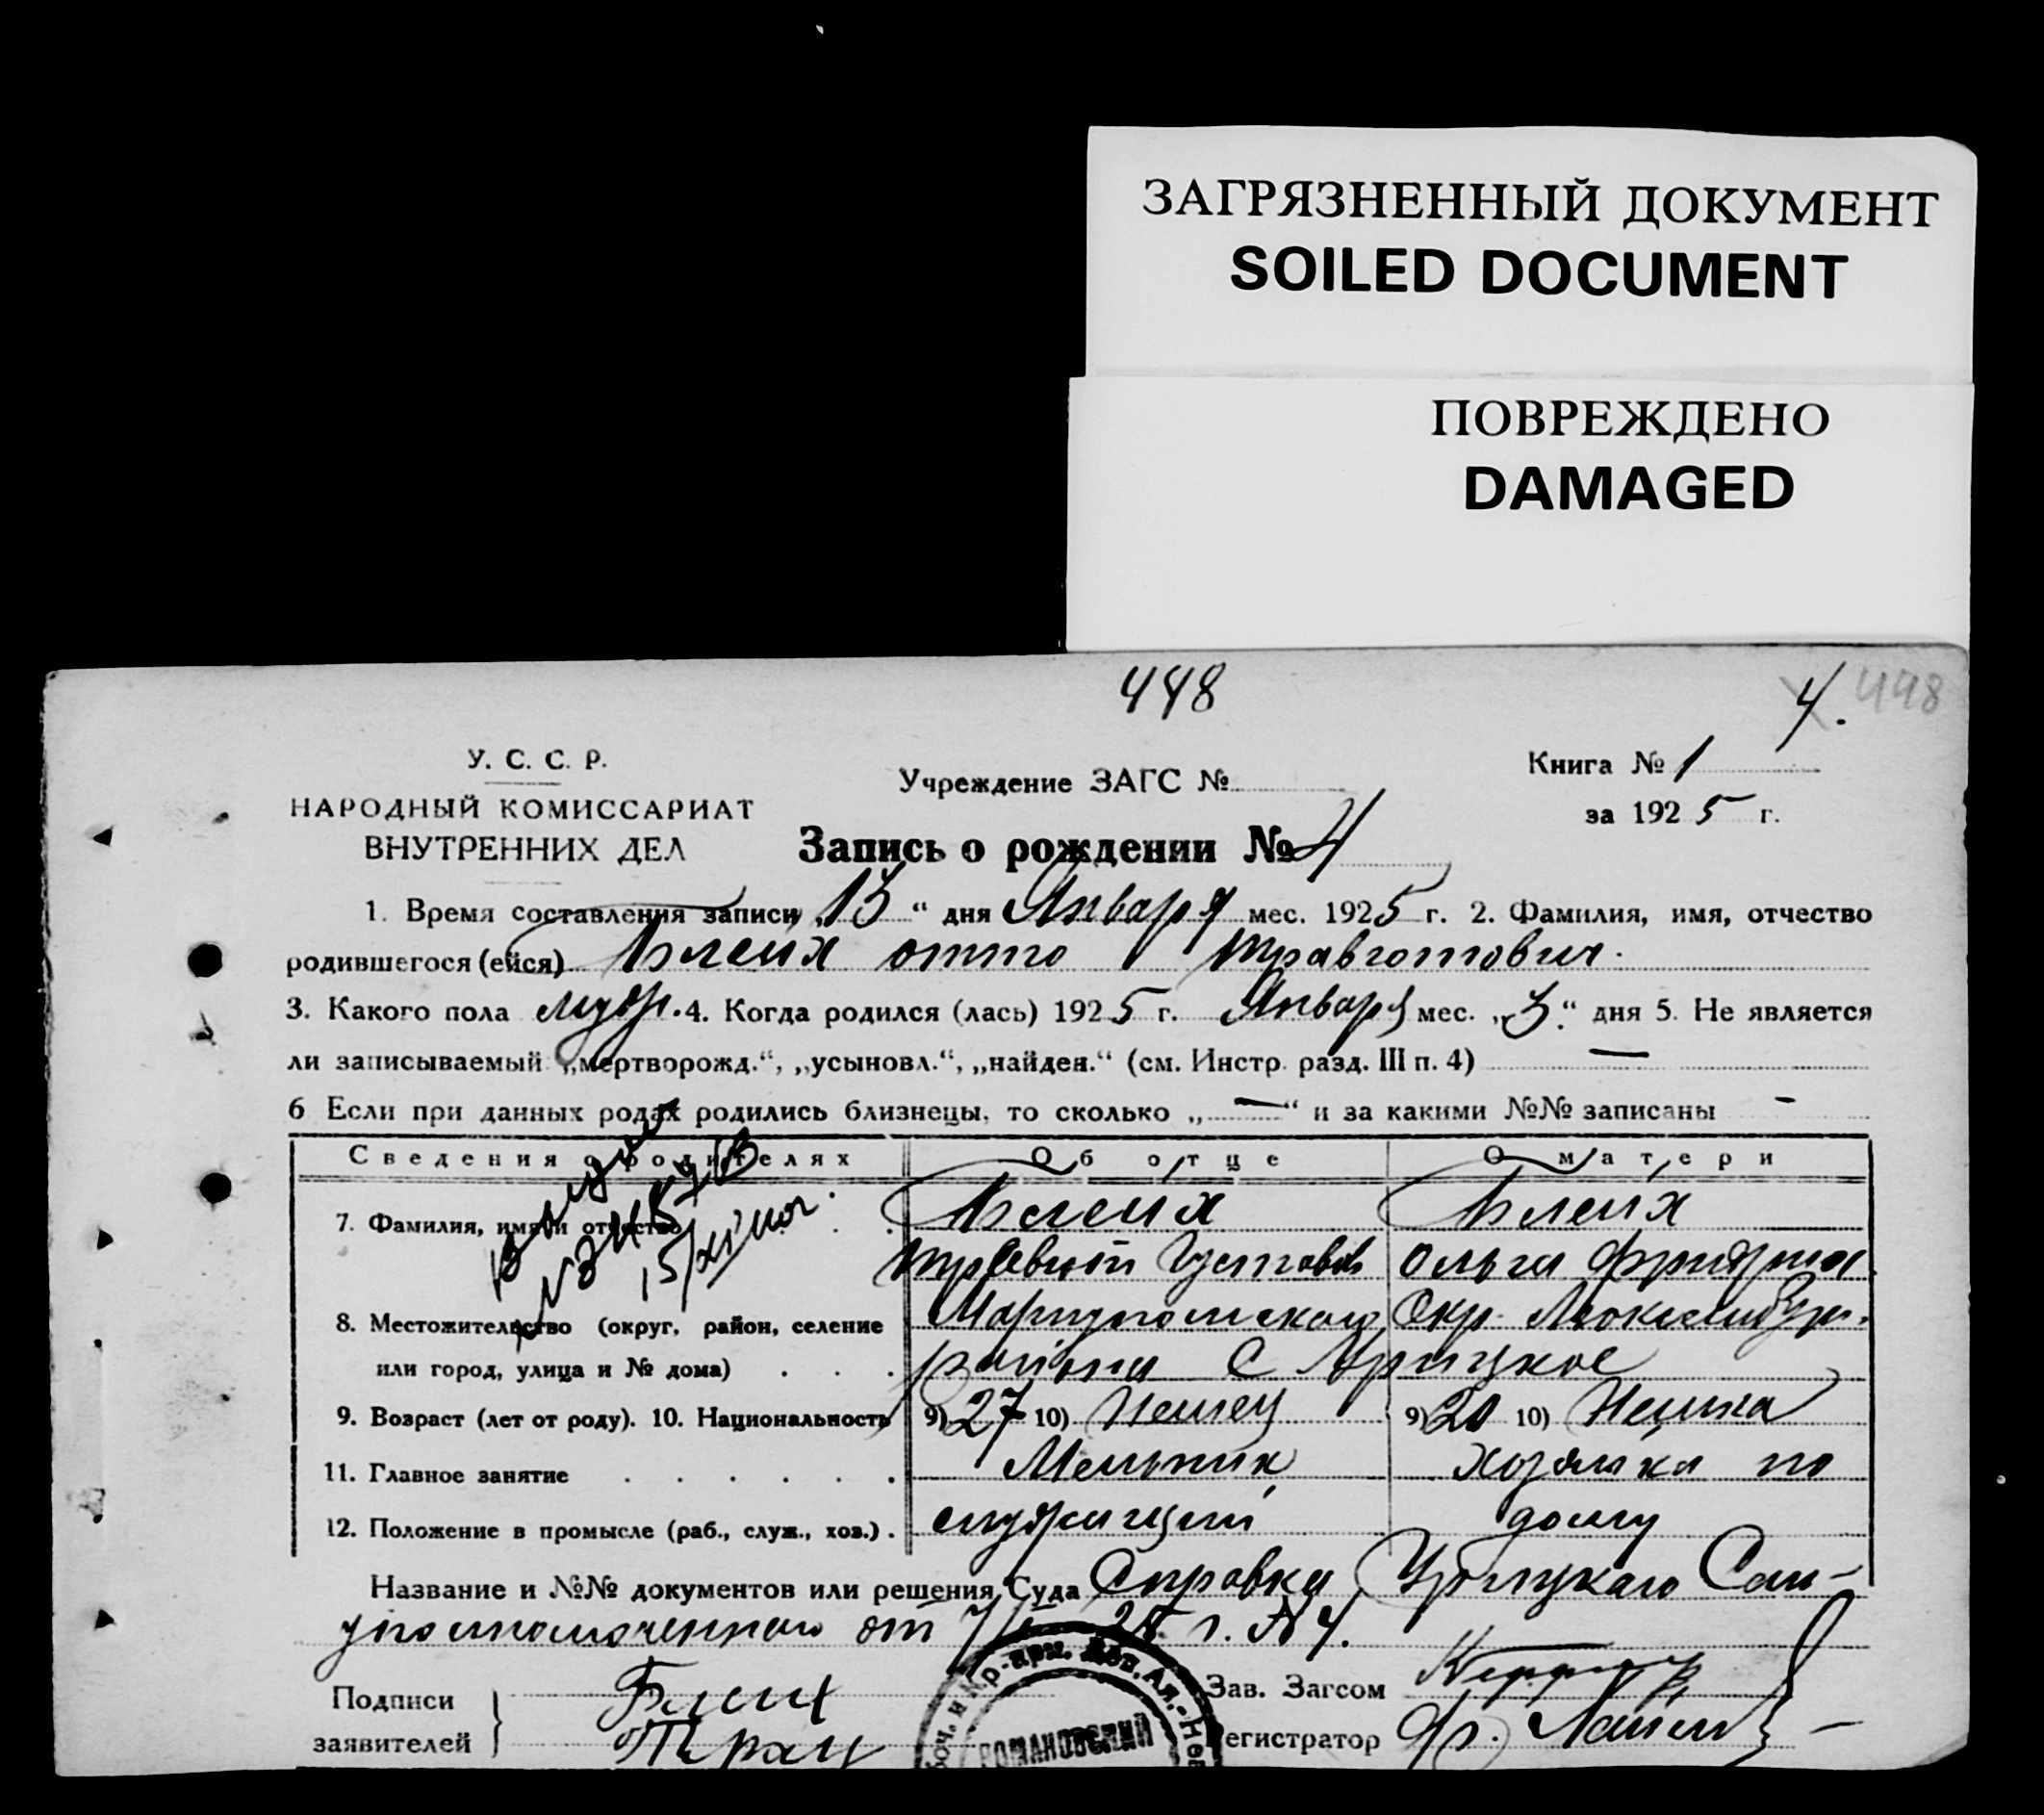 ЗАГРЯЗНЕННЫЙ ДОКУМЕНТ
SOILED DOCUMENT
ПОВРЕЖДЕНО
DAMAGED
448
4. 448
У. С. С. Р.
НАРОДНЫЙ КОМИССАРИАТ
ВНУТРЕННИХ ДЕЛ
Учреждение ЗАГС №
Книга № 1
за 1925 г.
Запись о рождении № 4
1. Время составления записи „13“ дня Января мес. 1925 г. 2. Фамилия, имя, отчество
родившегося (ейся) Блейх Отто Травготович.
3. Какого пола муж. 4. Когда родился (лась) 1925 г. Января мес. „3“ дня 5. Не является
ли записываемый „мертворожд.“, „усыновл.“, „найден.“ (см. Инстр. разд. III п. 4) —
6 Если при данных родах родились близнецы, то сколько „—“ и за какими №№ записаны -
Сведения о родителях Об отце О матери
7. Фамилия, имя и отчество Блейх Блейх
Густавов Ольга
8. Местожительство (округ, район, селение Мариупольской Окр. Люксембург.
или город, улица и № дома) района С Урицкое
9. Возраст (лет от роду). 10. Национальность 9) 27 10) Немец 9) 20 10) Немка
11. Главное занятие Мельник хозяйка по
12. Положение в промысле (раб., служ., хоз.) служащий дому
Название и №№ документов или решения Суда Справка Урицкаго Сан-
уполномоченнаго от 7/I 25 г. № 4.
Подписи
заявителей
Блейх
Зав. Загсом
Регистратор Фр.
РОМАНОВСКИЙ